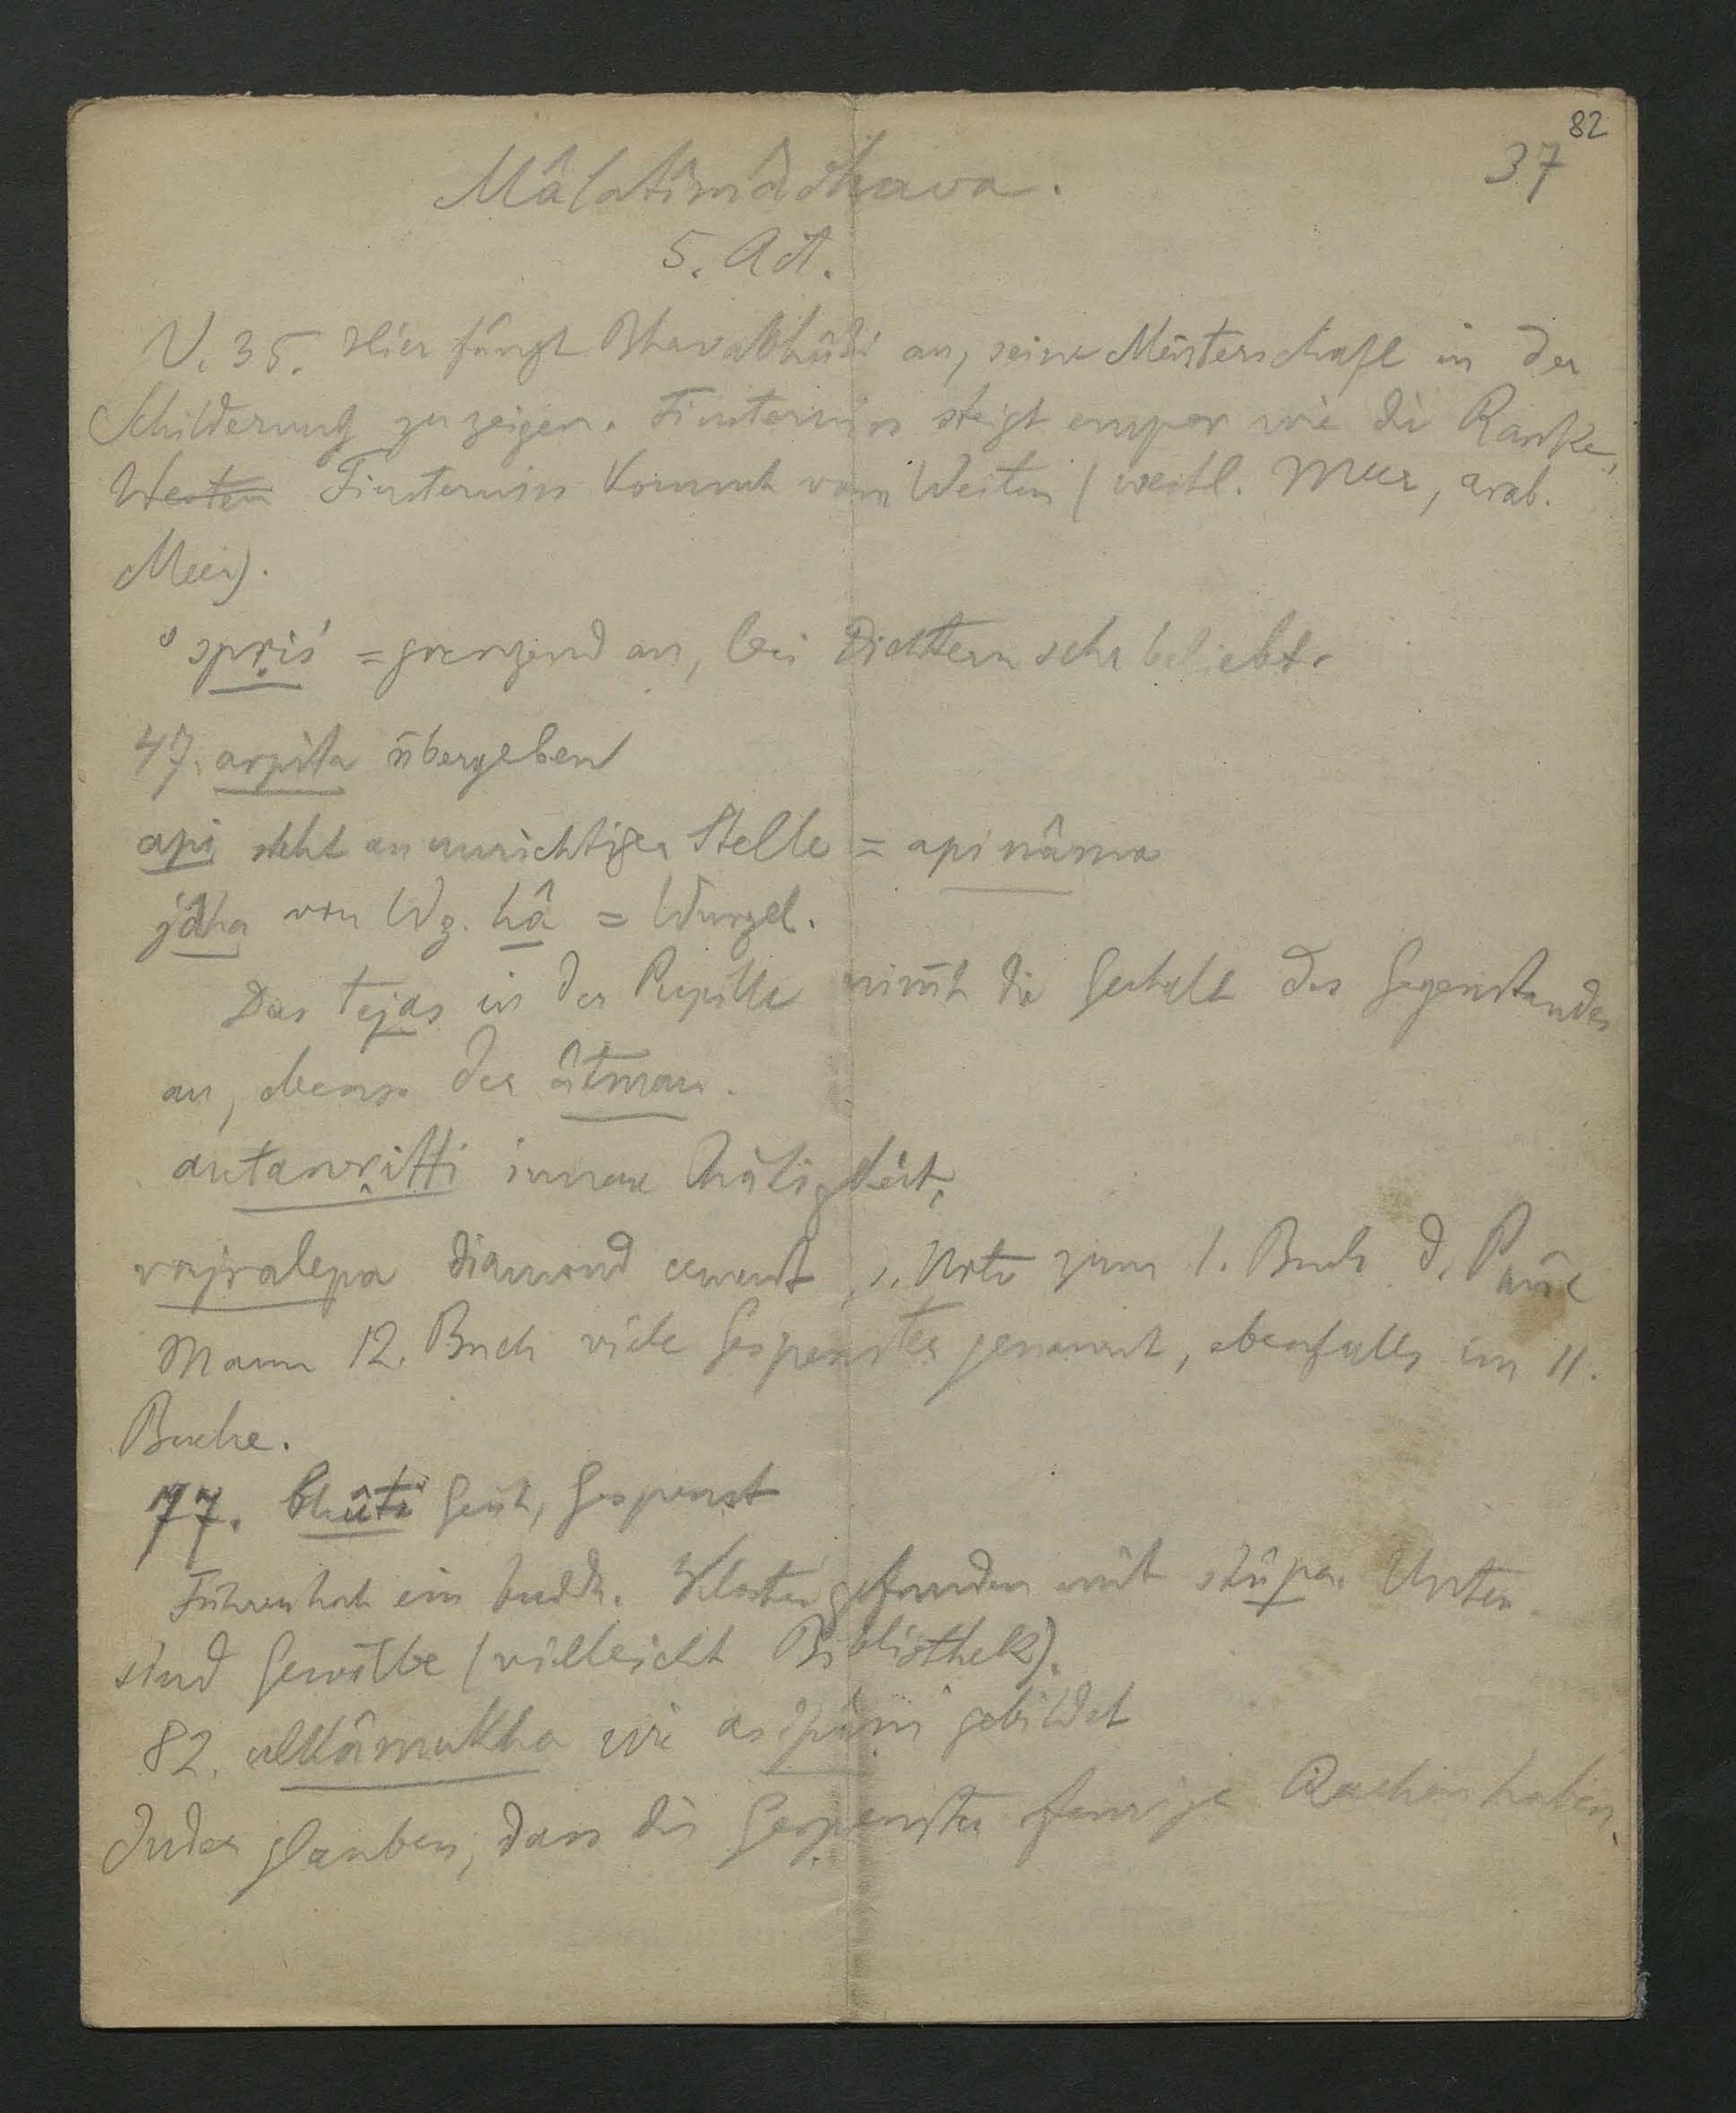 82
37
Mâlatîmâdhava.
5. Act.
V. 35. Hier fängt Bhavabhûti an, seine Meisterschaft in der
Schilderung zu zeigen. Finsterniss steigt empor wie die Ranke,
Westen Finsterniss kommt vom Westen (westl. Meer, arab.
Meer).
°spṛiś = grenzend an, bei Dichtern sehr beliebt.
47. arpita übergeben
api steht an unrichtiger Stelle = api nâma
von Wz. hâ = Wurzel.
Das tejas in der Pupille nim̅t die Gestalt des Gegenstandes
an, ebenso der âtman.
antarvṛitti innere Thätigkeit.
vajralepa diamond cement, s. Note zum 1. Buch d. Panc
Manu 12. Buch viele Gespenster genannt, ebenfalls im 11.
Buche.
77. bhûta Geist, Gespenst
Führer hat ein buddh. Kloster gefunden mit stûpa. Unten
sind Gewölbe (vielleicht Bibliothek).
82. ulkâmukha wie asipâni gebildet
Inder glauben, dass die Gespenster feurige Rachen haben.